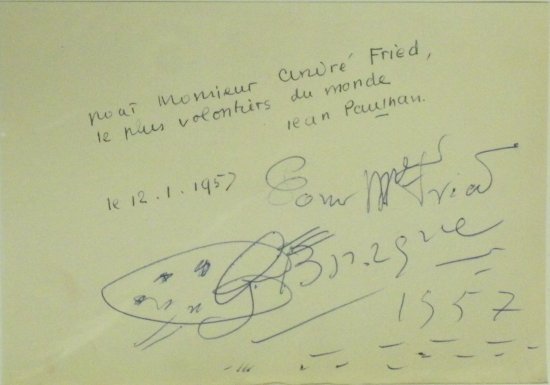 pour Monsieur André Fried,
le plus volontiers du monde
Jean Paulhan.
le 12.1.1957
Pour Mr Fried
G. Braque
1957